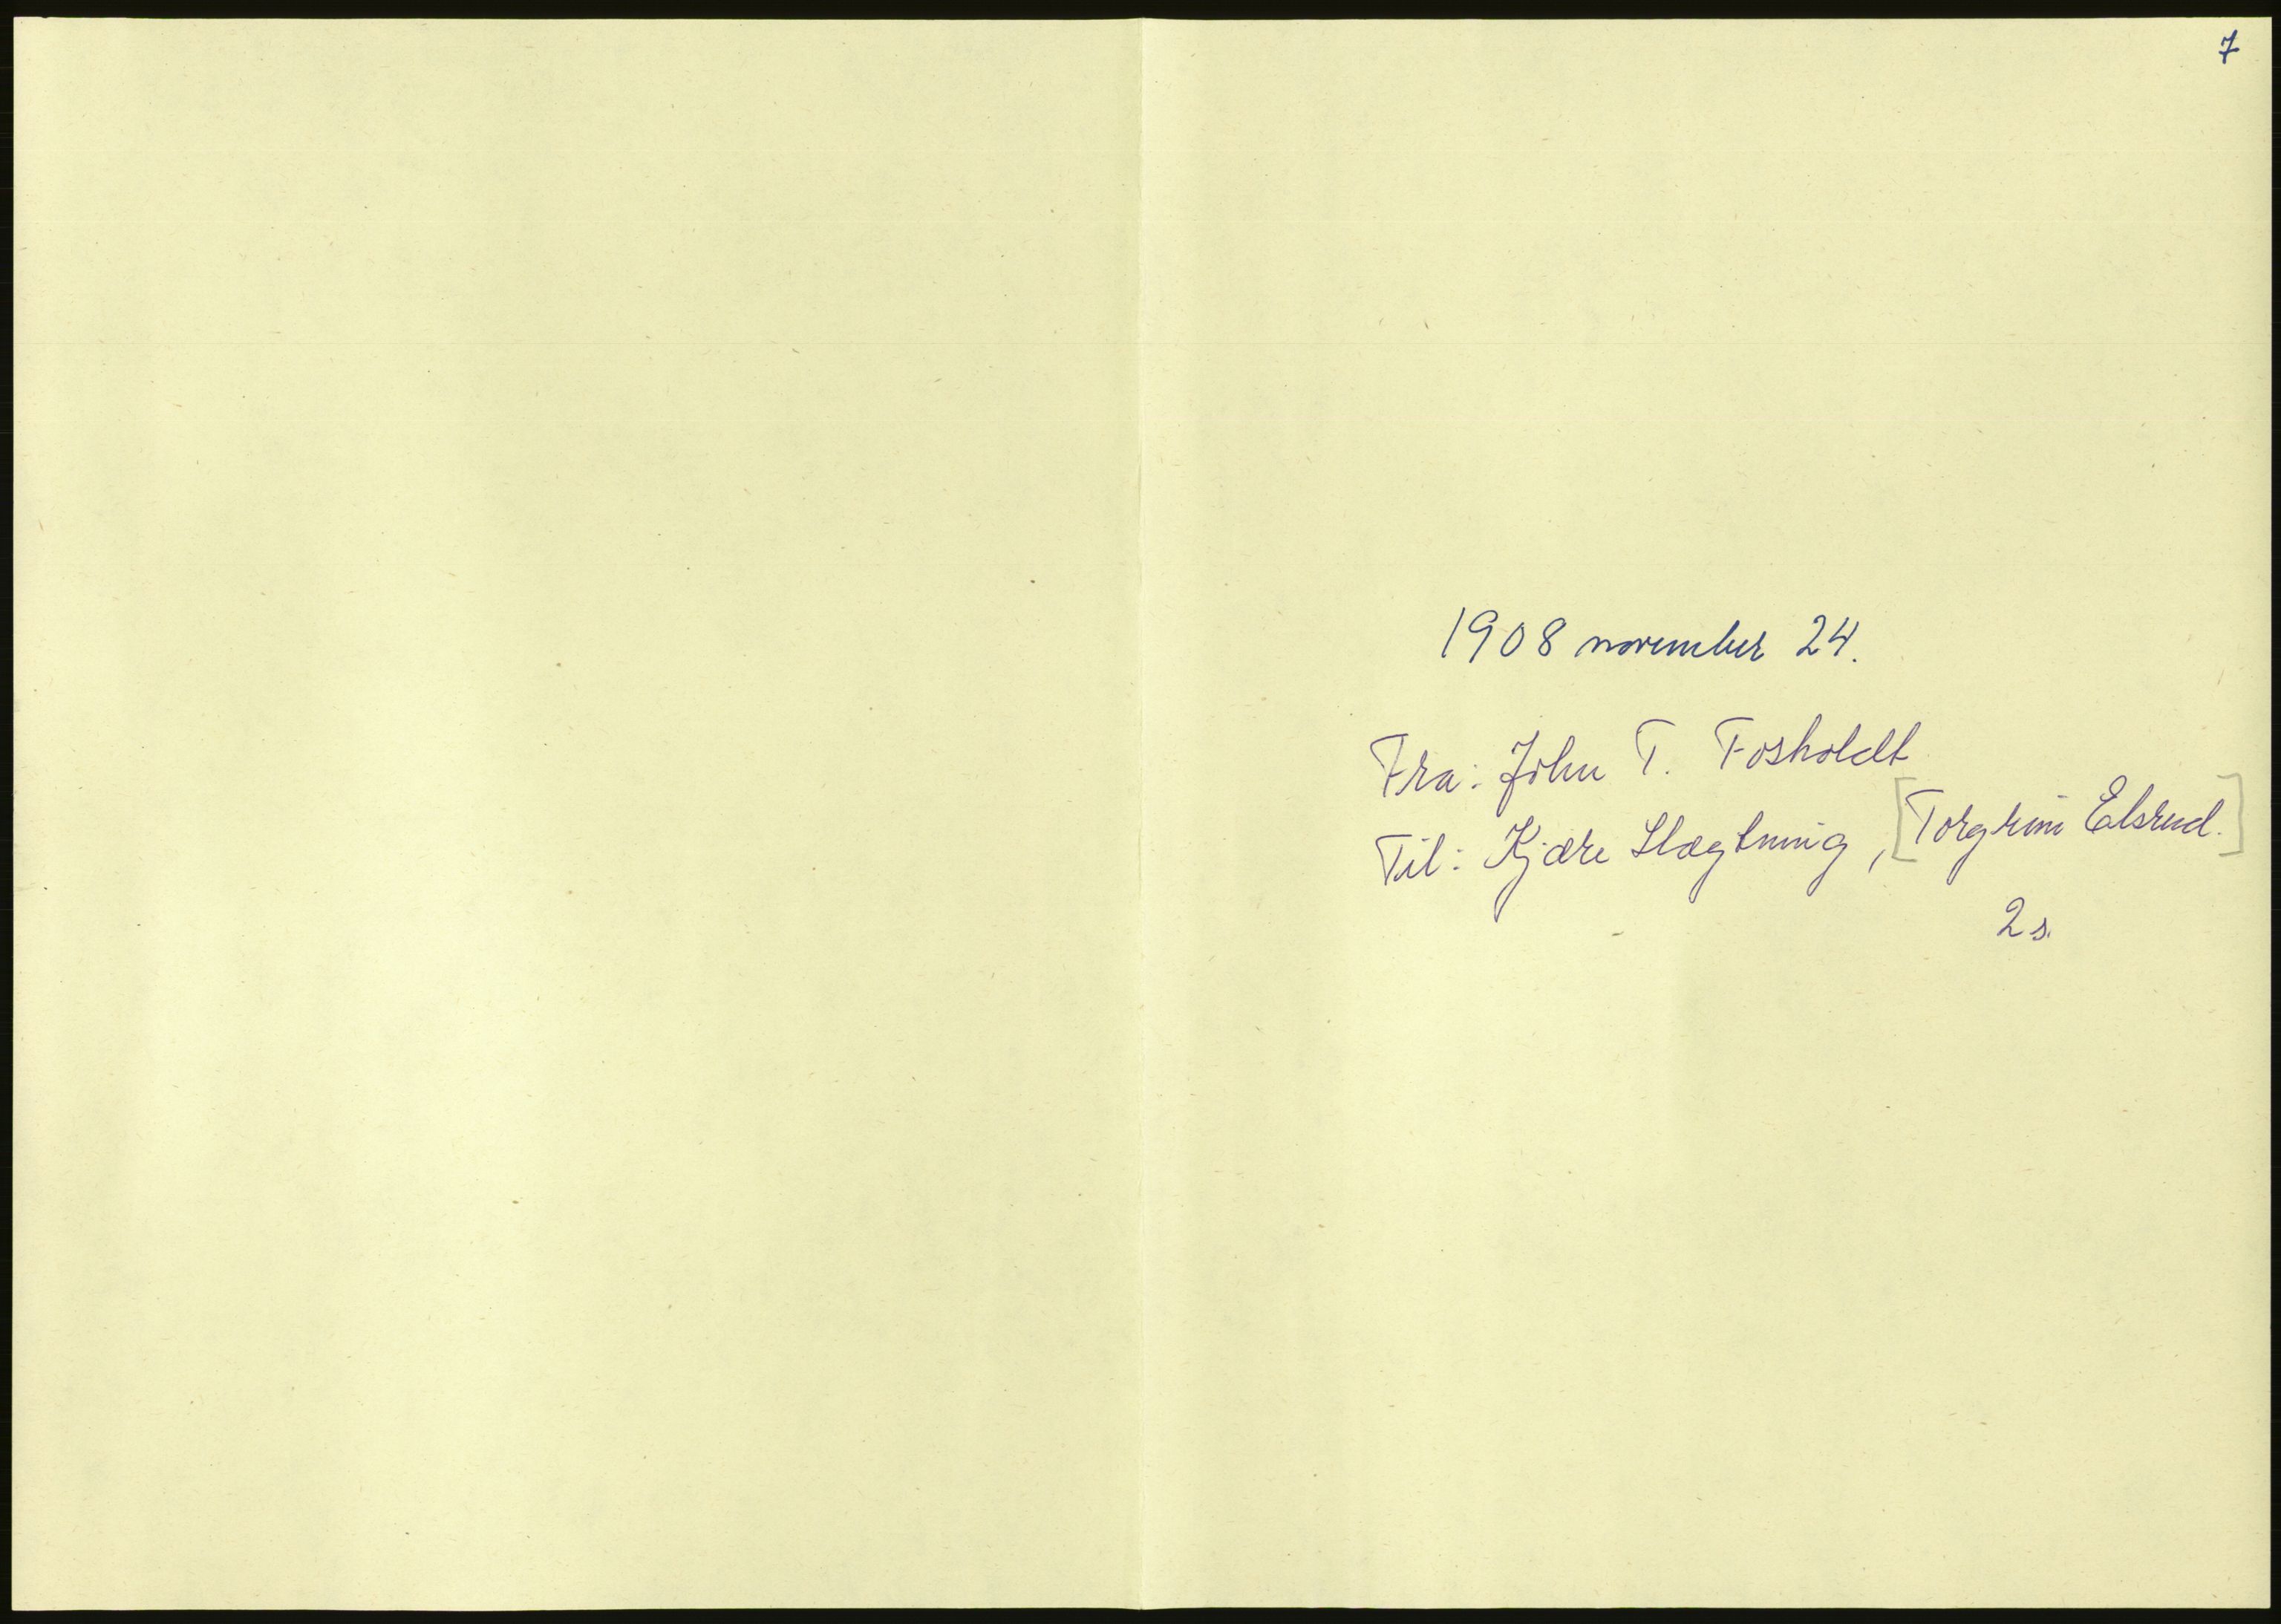 7
1908 november 24.
Fra: John T. Fosholdt
Til: Kjære Slægtning, [Torgrim Elsrud.]
2 s.